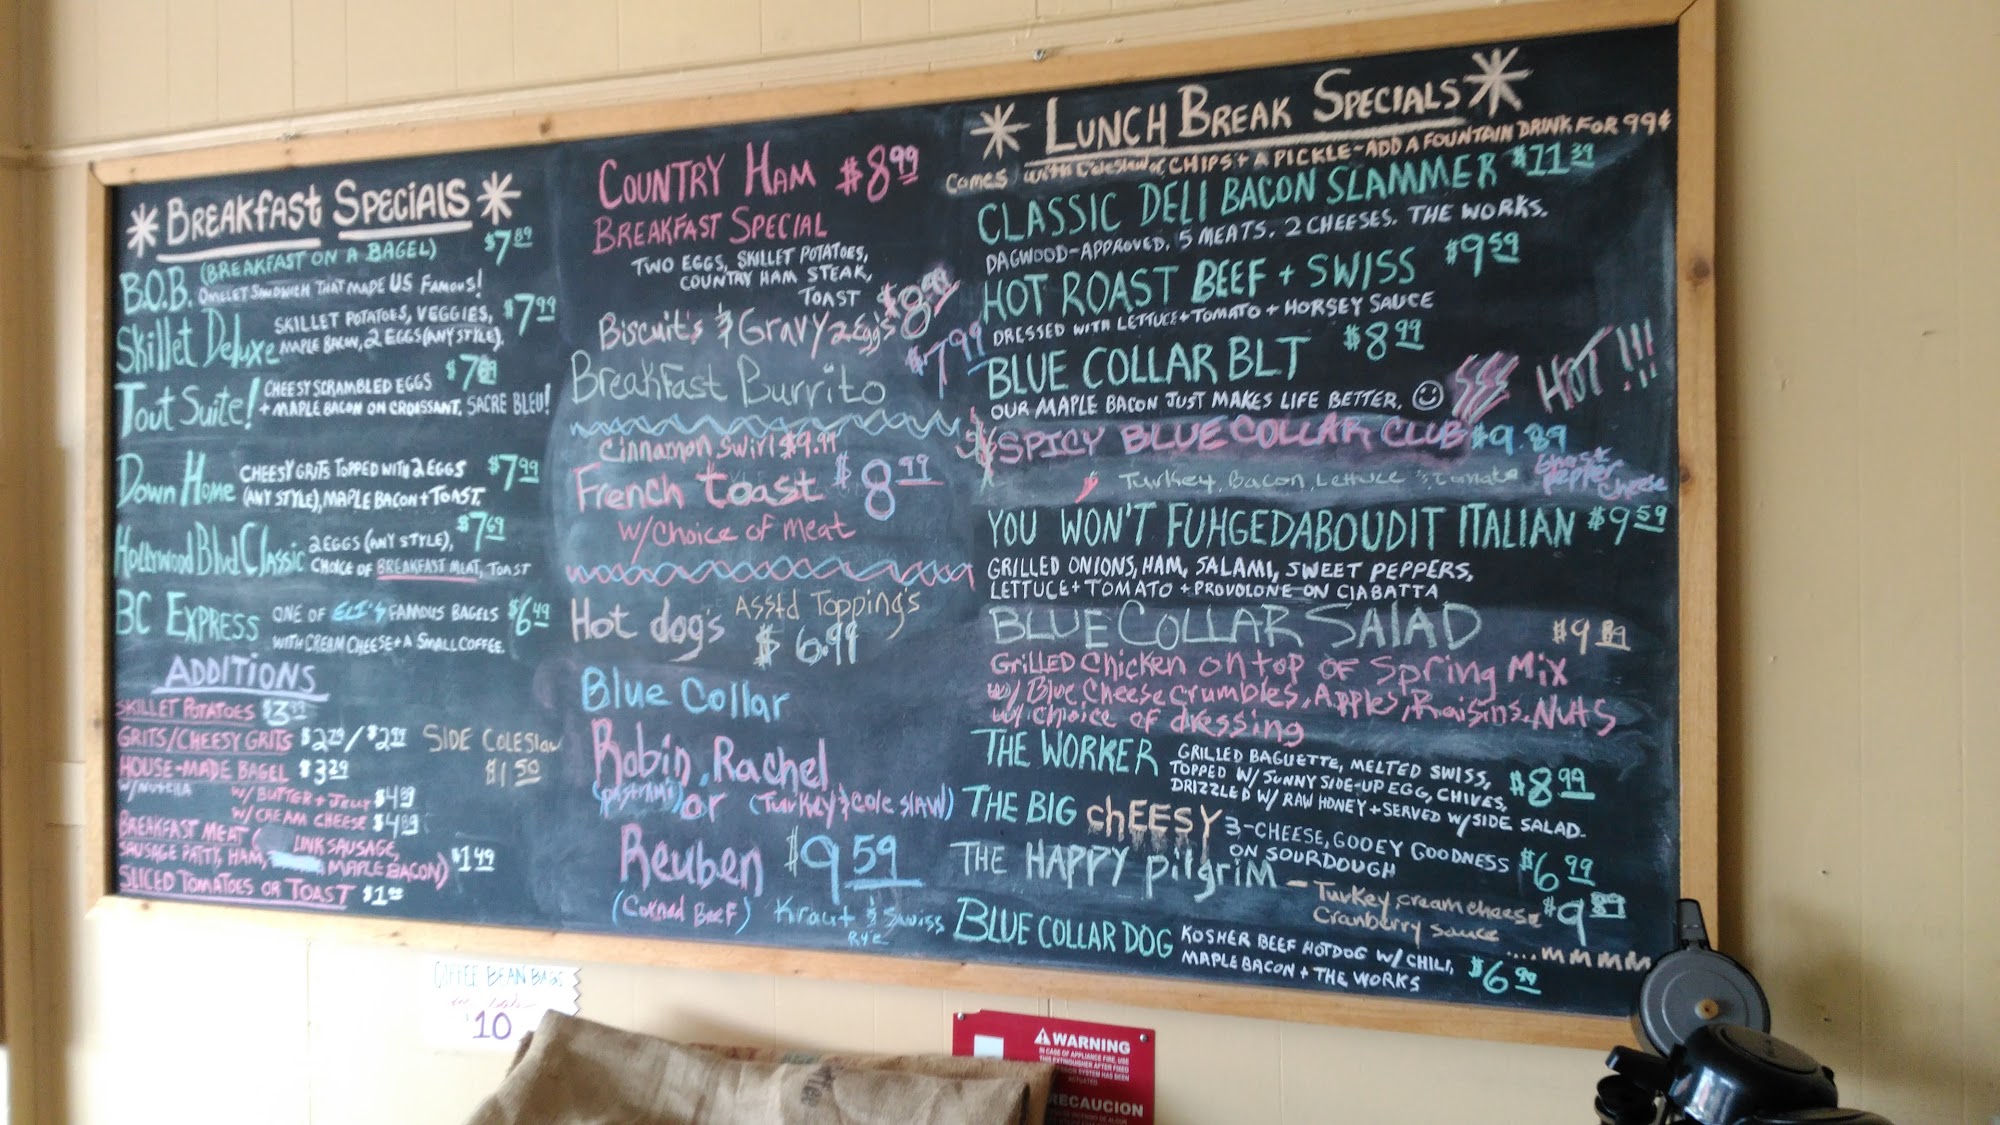 * BREAKFAST SPECIALS *
B.O.B. (BREAKFAST ON A BAGEL) $7.89
OMELET SANDWICH THAT MADE US FAMOUS!
Skillet Deluxe SKILLET POTATOES, VEGGIES, $7.99
MAPLE BACON, 2 EGGS (ANY STYLE).
Tout Suite! CHEESY SCRAMBLED EGGS
+ MAPLE BACON ON CROISSANT, SACRE BLEU!
Down Home CHEESY GRITS TOPPED WITH 2 EGGS $7.99
(ANY STYLE), MAPLE BACON + TOAST.
Hollywood Blvd Classic 2 EGGS (ANY STYLE), $7.69
CHOICE OF BREAKFAST MEAT, TOAST
BC EXPRESS ONE OF ELI'S FAMOUS BAGELS $6.49
WITH CREAM CHEESE + A SMALL COFFEE.
ADDITIONS
SKILLET POTATOES
GRITS/CHEESY GRITS
SIDE COLESLAW
$1.50
HOUSE-MADE BAGEL $3.29
W/NUTELLA W/BUTTER + JELLY
W/CREAM CHEESE $4.89
BREAKFAST MEAT ( LINK SAUSAGE,
SAUSAGE PATTY, HAM, MAPLE BACON) $1.49
SLICED TOMATOES OR TOAST
COUNTRY HAM $8.99
BREAKFAST SPECIAL
TWO EGGS, SKILLET POTATOES,
COUNTRY HAM STEAK,
TOAST
Biscuit's & Gravy 2 Egg's $8.99
Breakfast Burrito $7.99
Cinnamon Swirl $9.99
French toast $8.99
w/choice of meat
Hot dog's Asstd Topping's
$6.99
Blue Collar
Robin, Rachel
(pastrami) or (Turkey & cole slaw)
Reuben $9.59
(Corned Beef) Kraut & Swiss
Rye
* LUNCH BREAK SPECIALS *
Comes with coleslaw or CHIPS + A PICKLE - ADD A FOUNTAIN DRINK FOR 99¢
CLASSIC DELI BACON SLAMMER $11.39
DAGWOOD-APPROVED. 5 MEATS. 2 CHEESES. THE WORKS.
HOT ROAST BEEF + SWISS $9.59
DRESSED WITH LETTUCE + TOMATO + HORSEY SAUCE
BLUE COLLAR BLT $8.99
OUR MAPLE BACON JUST MAKES LIFE BETTER. HOT!!!
SPICY BLUE COLLAR CLUB $9.89
Turkey, Bacon, Lettuce & tomato Ghost Pepper Cheese
YOU WON'T FUHGEDABOUDIT ITALIAN $9.59
GRILLED ONIONS, HAM, SALAMI, SWEET PEPPERS,
LETTUCE + TOMATO + PROVOLONE ON CIABATTA
BLUE COLLAR SALAD $9.89
GRILLED Chicken on top of Spring Mix
w/ Blue Cheese crumbles, Apples, Raisins, Nuts
w/ choice of dressing
THE WORKER GRILLED BAGUETTE, MELTED SWISS,
TOPPED W/ SUNNY SIDE-UP EGG, CHIVES, $8.99
DRIZZLED W/ RAW HONEY + SERVED W/ SIDE SALAD.
THE BIG chEESY 3-CHEESE, GOOEY GOODNESS $6.99
ON SOURDOUGH
THE HAPPY pilgrim - Turkey, cream cheese $9.89
Cranberry sauce ....mmmmm
BLUE COLLAR DOG KOSHER BEEF HOTDOG W/ CHILI, $6.99
MAPLE BACON + THE WORKS
COFFEE BEAN BAGS
$10
WARNING
IN CASE OF APPLIANCE FIRE, USE
THIS EXTINGUISHER AFTER FIXED
SYSTEM HAS BEEN
ACTUATED
RECAUCION